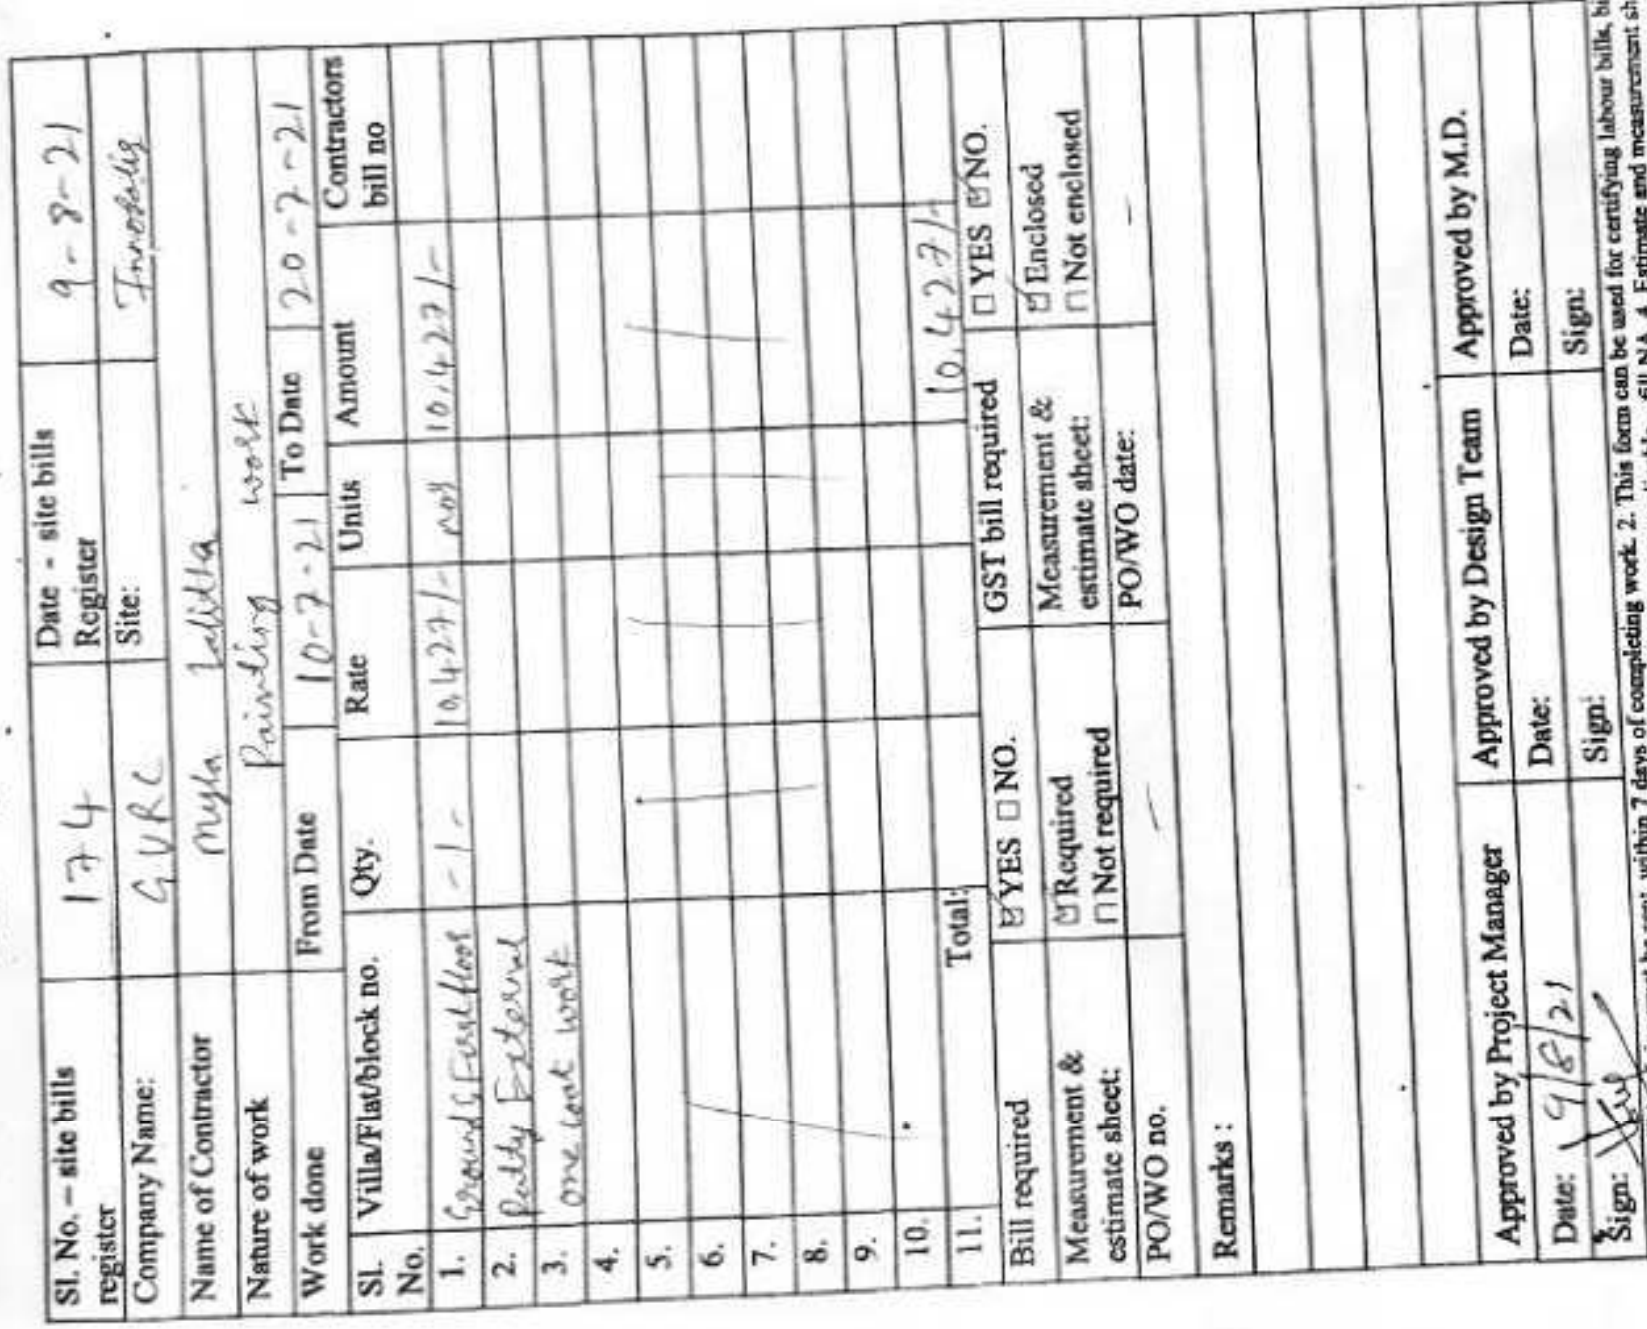 Sl. No. – site bills register 174 Date - site bills Register 9-8-21
Company Name: GVRC Site: Innopolis
Name of Contractor Myla Lalitha
Nature of work Painting work
Work done From Date 10-7-21 To Date 20-7-21
Sl. No. Villa/Flat/block no. Qty. Rate Units Amount Contractors bill no
1. Ground & First floor -1- 10,427/- nos 10,427/-
2. Putty External
3. one coat work
4.
5.
6.
7.
8.
9.
10.
11. Total: 10,427/-
Bill required ☑ YES ☐ NO. GST bill required ☐ YES ☑ NO.
Measurement & estimate sheet: ☑ Required ☐ Not required Measurement & estimate sheet: ☑ Enclosed ☐ Not enclosed
PO/WO no. — PO/WO date: —
Remarks :
Approved by Project Manager Approved by Design Team Approved by M.D.
Date: 9/8/21 Date: Date:
Sign: Sign: Sign:
within 7 days of completing work. 2. This form can be used for certifying labour bills,
4. Estimate and measurement